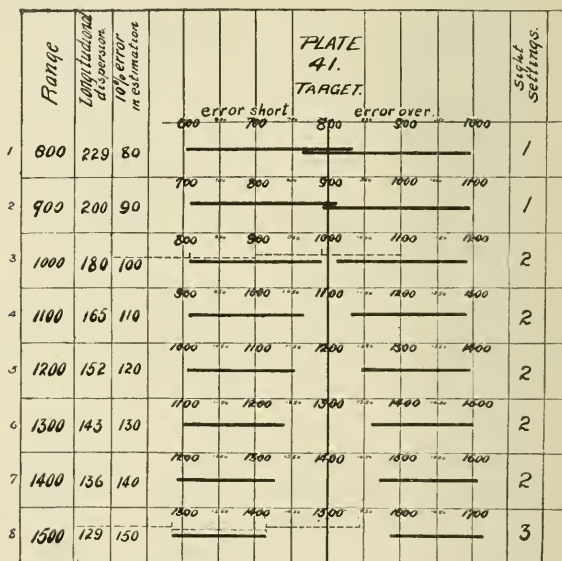 Range
Longitudinal dispersion.
10% error in estimation
PLATE
41.
TARGET.
error short
error over.
Sight Settings.
600 700 800 900 1000
1 800 229 80 1
700 800 900 1000 1100
2 900 200 90 1
800 900 1000 1100 1200
3 1000 180 100 2
900 1000 1100 1200 1300
4 1100 165 110 2
1000 1100 1200 1300 1400
5 1200 152 120 2
1100 1200 1300 1400
6 1300 143 130 2
1200 1300 1400 1500 1600
7 1400 136 140 2
1300 1400 1500 1600 1700
8 1500 129 150 3